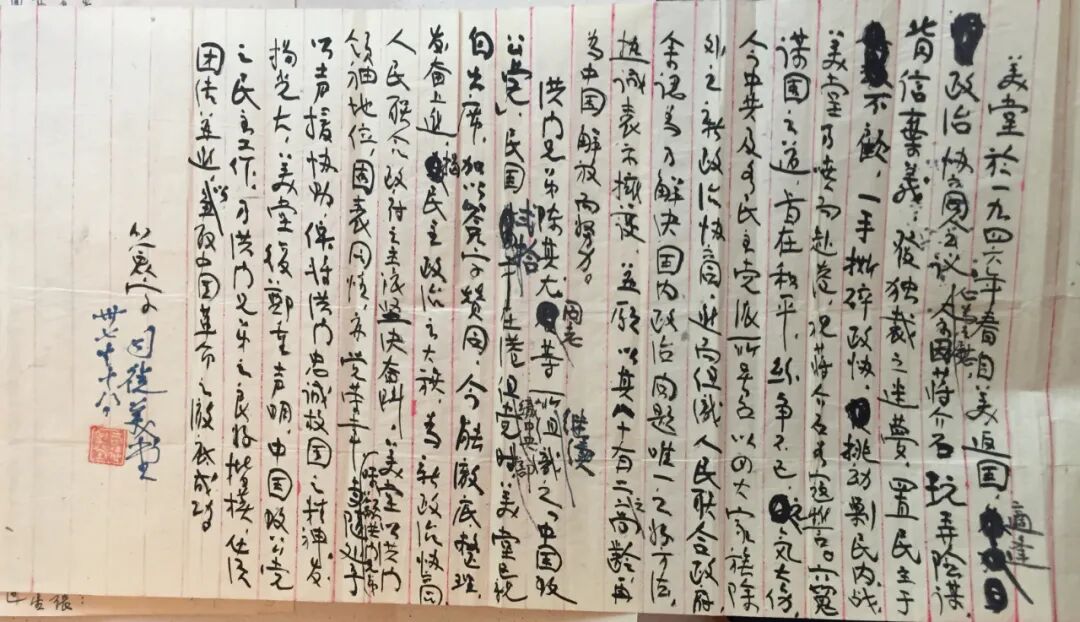 美堂於一九四六年春自美返国，适逢
政治协商会议，因蒋介石玩弄阴谋，
背信弃义，发独裁之迷梦，置民主于
不顾，一手撕碎政协，挑动剿民内战，
美堂乃愤而赴港，况蒋介石
谋国之道，旨在和平，丝争不已，元气大伤，
今中共及各民主党派所号召以四大家族除
外之新政治协商，进而组织人民联合政府，
余认为乃解决国内政治问题唯一之好方法，
热诚表示拥护，并愿以其八十有二之高龄，再
为中国解放而努力。
洪门兄弟陈其尤同志等所组织之中国致
公党，民国贰拾年在港组党时，美堂已亲
自出席，加以签字赞同，今能澈底整理，
奋上进，揭民主政治之大旗，为新政治协商
人民联合政府之主张坚决奋斗，美堂以洪门
领袖地位，固表同情，
公声援协助，俾将洪门忠诚救国之精神，发
扬光大，美堂复郑重声明，中国致公党
之民主工作，乃洪门兄弟之良好楷模，
团结并进，中国革命之澈底成功
签字 司徒美堂
卅七年十